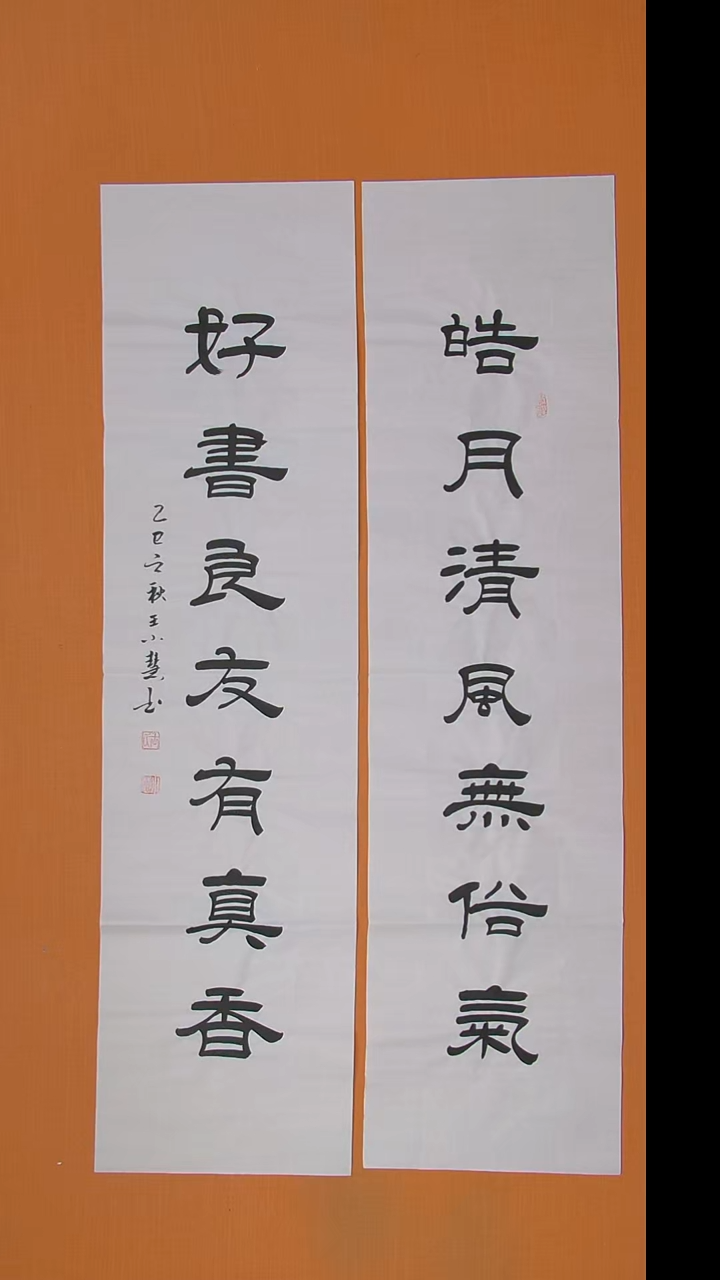 皓月清風無俗氣
好書良友有真香
乙巳之秋王小慧书